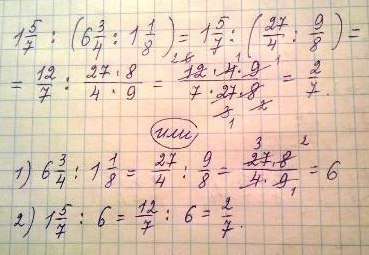 1 5/7 : (6 3/4 : 1 1/8) = 1 5/7 : (27/4 : 9/8) =
= 12/7 : 27·8/4·9 = 12·4·9/7·27·8 = 2/7.
или
1) 6 3/4 : 1 1/8 = 27/4 : 9/8 = 27·8/4·9 = 6
2) 1 5/7 : 6 = 12/7 : 6 = 2/7.